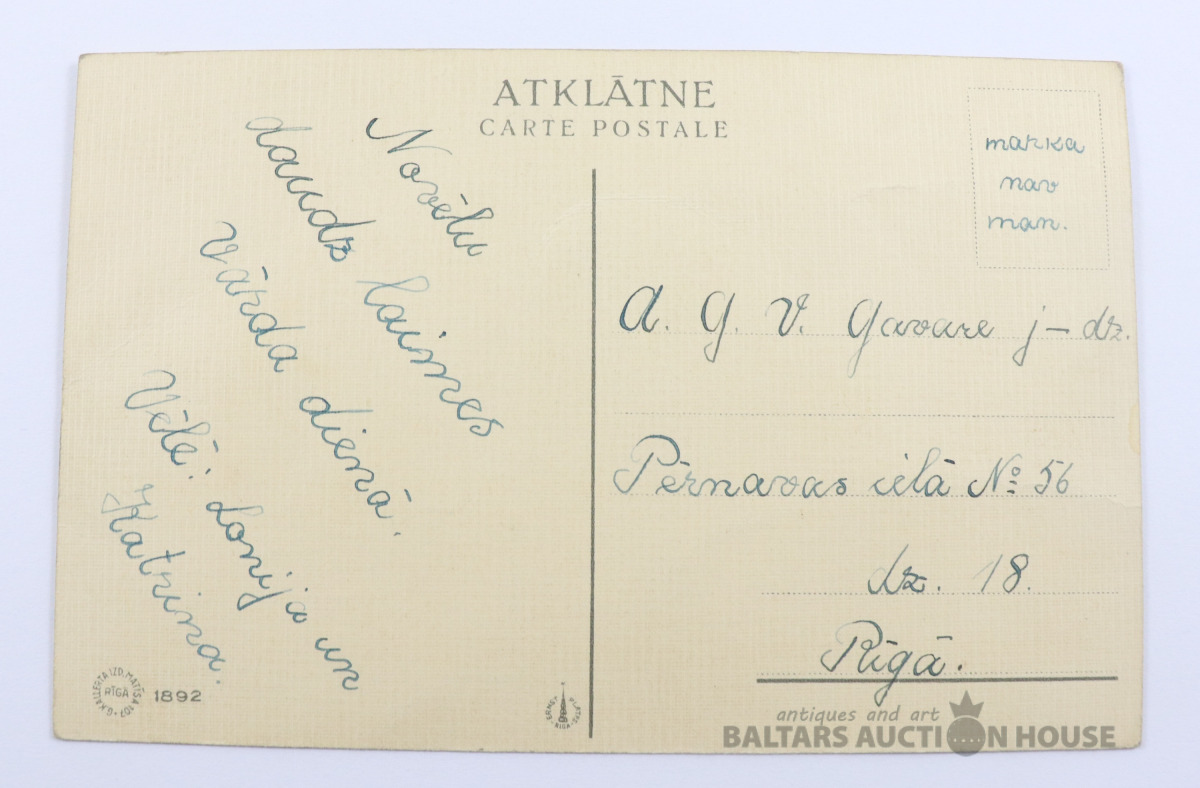 ATKLĀTNE
CARTE POSTALE
marka
nav
man.
Novēlu
daudz laimes
Vārda dienā.
Vēlē: Lonija un
Katrina.
A. G. V. Gavare j-dz.
Pērnavas ielā № 56
dz. 18.
Rīgā.
G. KALLERTA IZD. MATĪSA 107
RĪGĀ
1892
antiques and art
BALTARS AUCTION HOUSE